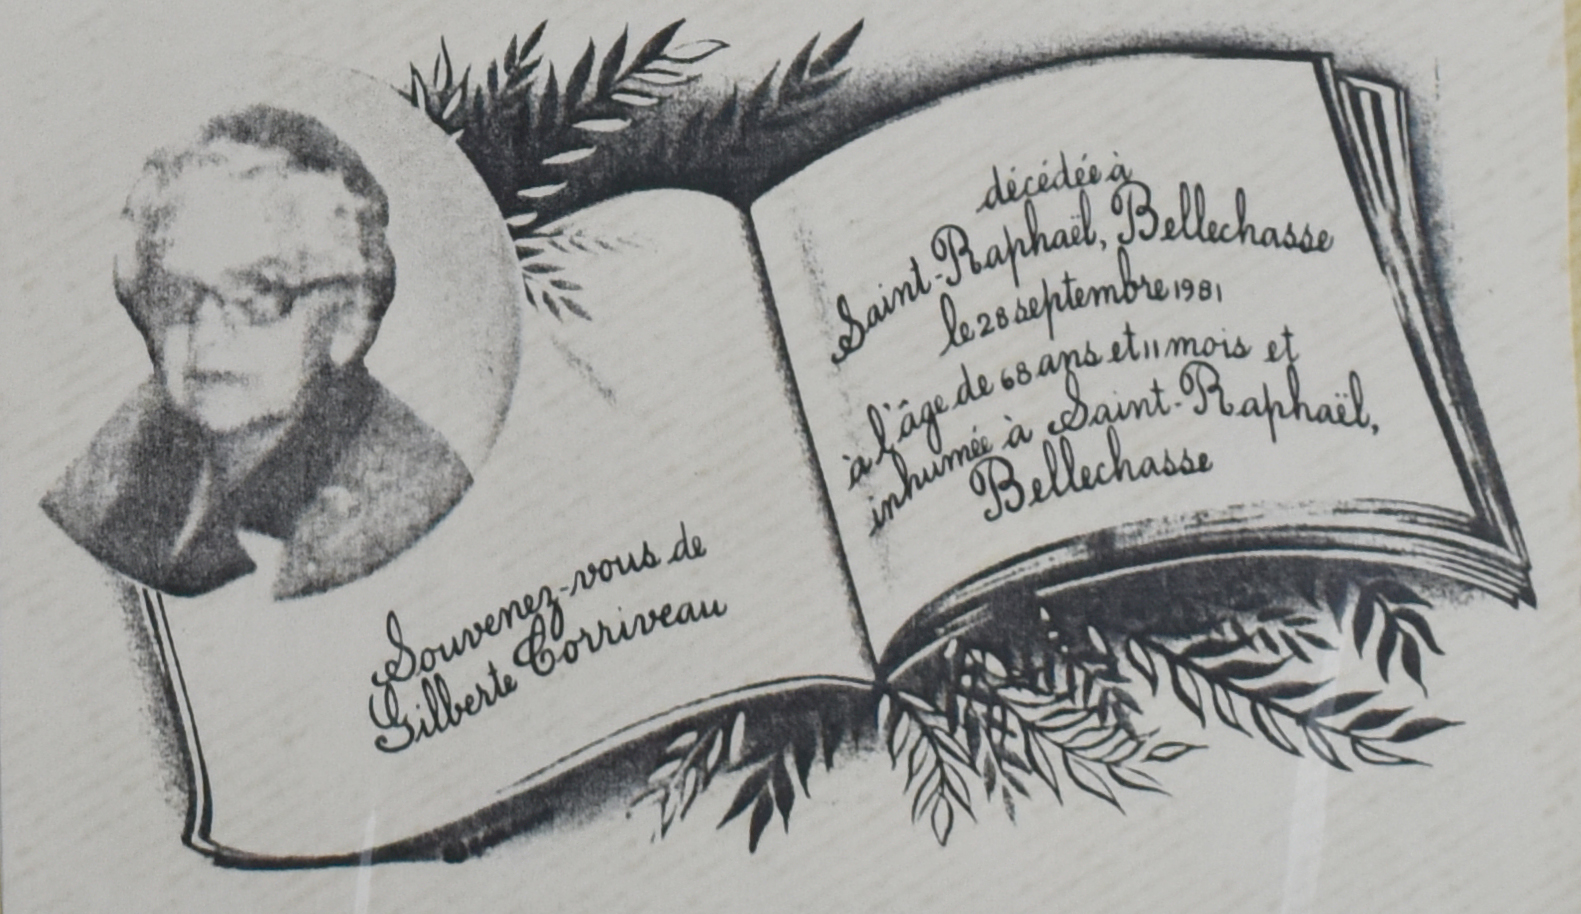 Souvenez-vous de
Gilberte Corriveau
décédée à
Saint-Raphaël, Bellechasse
le 28 septembre 1981
à l'âge de 68 ans et 11 mois et
inhumée à Saint-Raphaël,
Bellechasse